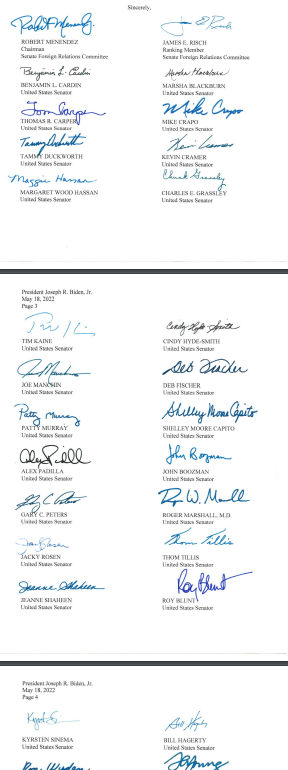 Sincerely,
Robert Menendez
James E. Risch
ROBERT MENENDEZ
Chairman
Senate Foreign Relations Committee
JAMES E. RISCH
Ranking Member
Senate Foreign Relations Committee
Benjamin L. Cardin
Marsha Blackburn
BENJAMIN L. CARDIN
United States Senator
MARSHA BLACKBURN
United States Senator
Tom Carper
Mike Crapo
THOMAS R. CARPER
United States Senator
MIKE CRAPO
United States Senator
Tammy Duckworth
Kevin Cramer
TAMMY DUCKWORTH
United States Senator
KEVIN CRAMER
United States Senator
Maggie Hassan
Chuck Grassley
MARGARET WOOD HASSAN
United States Senator
CHARLES E. GRASSLEY
United States Senator
President Joseph R. Biden, Jr.
May 18, 2022
Page 3
Cindy Hyde-Smith
TIM KAINE
United States Senator
CINDY HYDE-SMITH
United States Senator
Joe Manchin
Deb Fischer
JOE MANCHIN
United States Senator
DEB FISCHER
United States Senator
Patty Murray
Shelley Moore Capito
PATTY MURRAY
United States Senator
SHELLEY MOORE CAPITO
United States Senator
Alex Padilla
John Boozman
ALEX PADILLA
United States Senator
JOHN BOOZMAN
United States Senator
Gary C. Peters
Roger W. Marshall
GARY C. PETERS
United States Senator
ROGER MARSHALL, M.D.
United States Senator
Jacky Rosen
Thom Tillis
JACKY ROSEN
United States Senator
THOM TILLIS
United States Senator
Jeanne Shaheen
Roy Blunt
JEANNE SHAHEEN
United States Senator
ROY BLUNT
United States Senator
President Joseph R. Biden, Jr.
May 18, 2022
Page 4
Bill Hagerty
KYRSTEN SINEMA
United States Senator
BILL HAGERTY
United States Senator
Ron Wyden